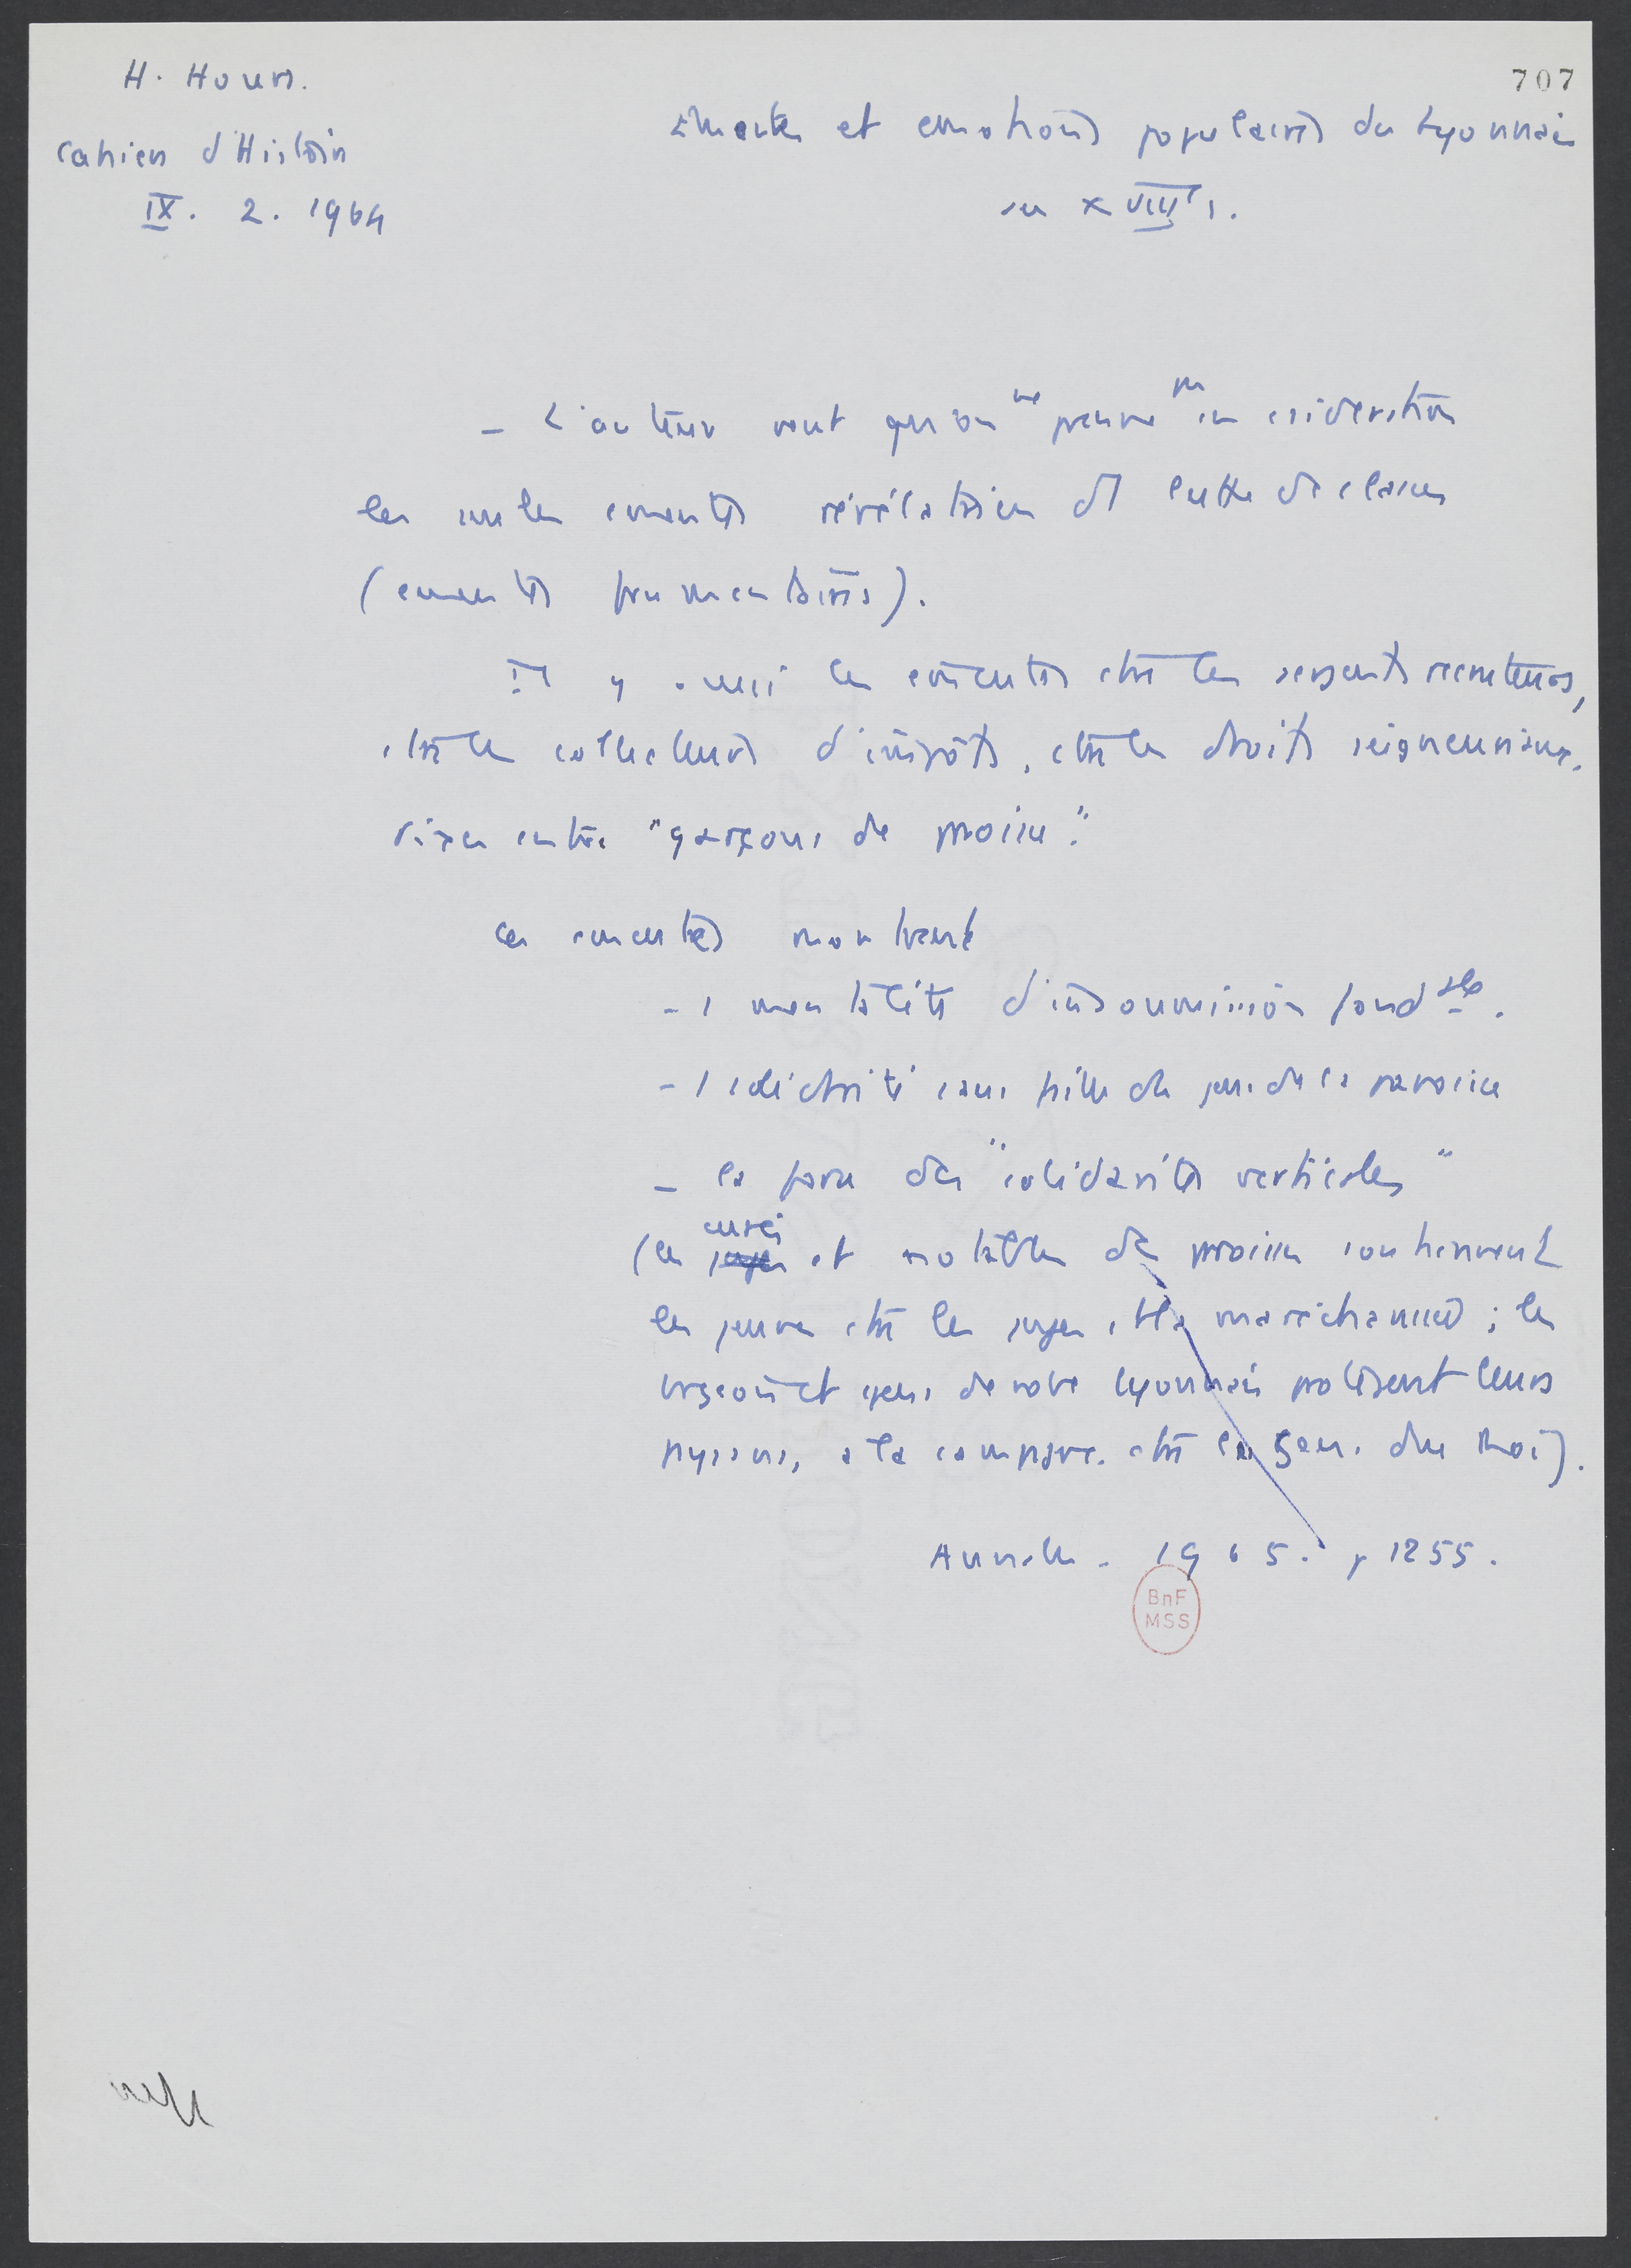 H. Hours.
Cahiers d'Histoire
IX. 2. 1964
707
Emeutes et emotions populaires du Lyonnais
au XVIIIe s.
- L'auteur veut qu'on ne prenne pas en considération
les seules émeutes révélatrices de lutte de classes
(émeutes frumentaires).
Il y a aussi les émeutes ctre les sergents recruteurs,
ctre les collecteurs d'impôts, ctre les droits seigneuriaux.
rixes entre "garçons de paroisse".
ces émeutes montrent
- 1 mentalité d'insoumission fondale.
- 1 solidarité des jeunes de la paroisse
- la force des "solidarités verticales"
(les juges curés et notables de paroisse soutiennent
les jeunes ctre les juges et la maréchaussée ;
bourgeois et gens de robe lyonnais protègent leurs
paysans, à la campagne. ctre les gens du Roi).
Annales. 1965. p 1255.
BnF
MSS